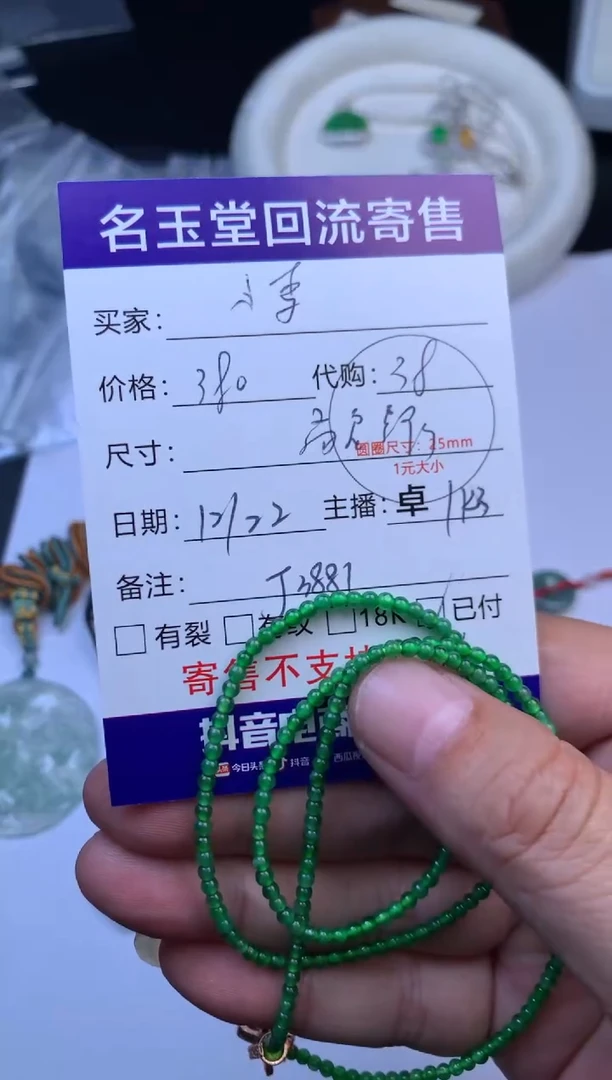 名玉堂回流寄售
买家:
价格: 380 代购: 38
尺寸:
圆圈尺寸: 25mm
1元大小
日期: 12/22 主播: 卓
备注: J3881
有裂 有纹 18K 已付
寄售不支
抖音电
今日头 抖音 西瓜